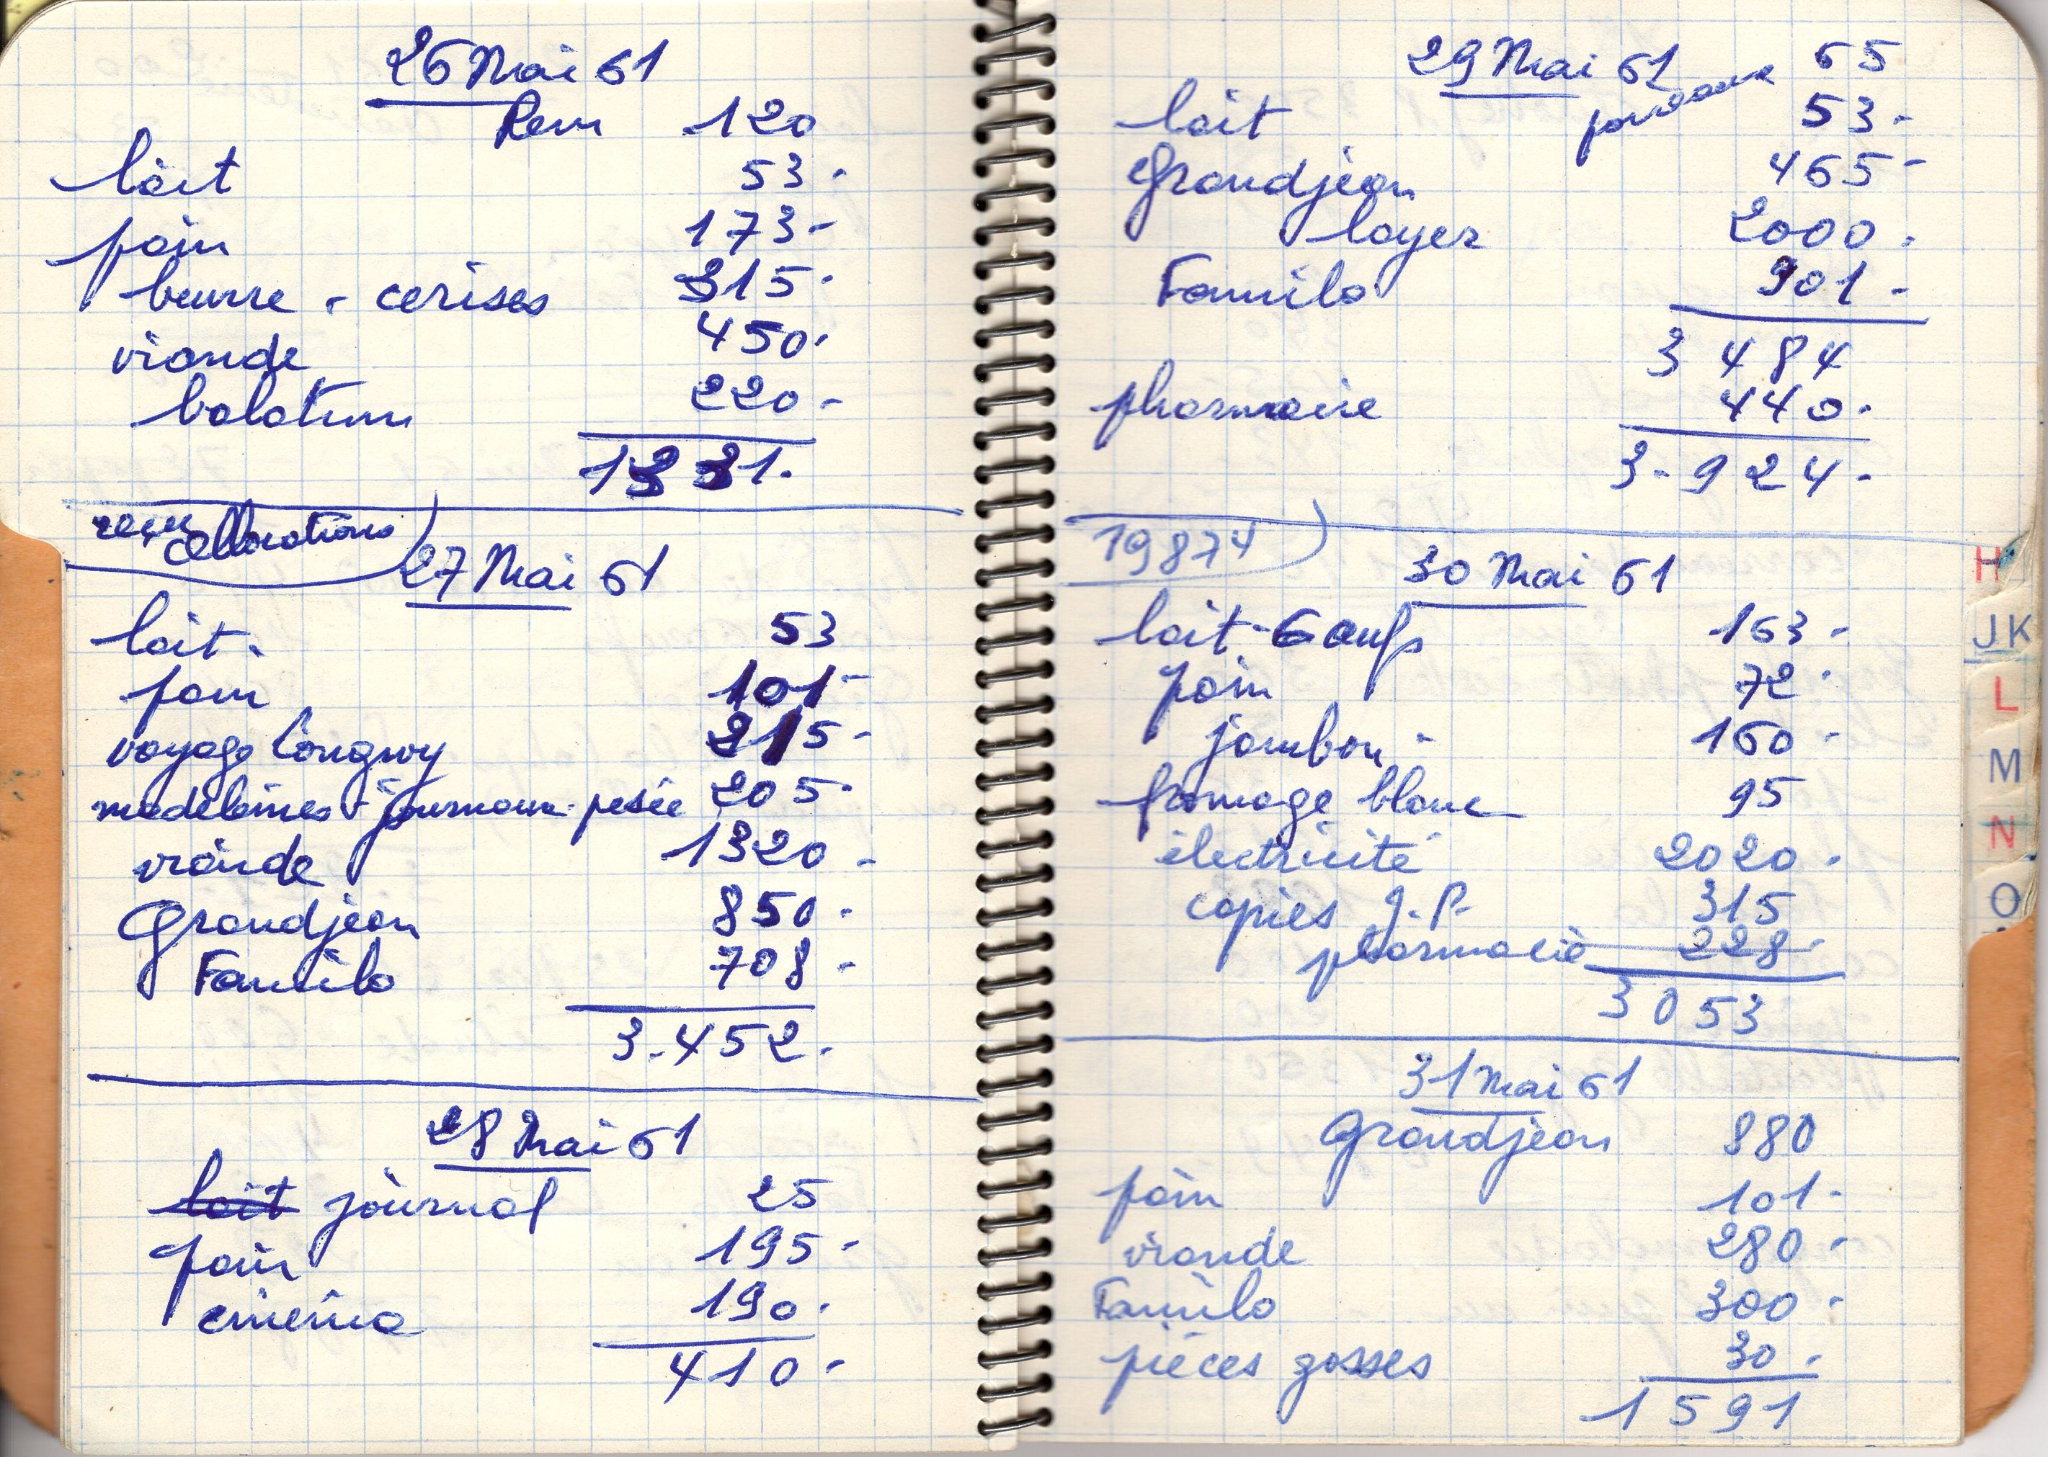 26 Mai 61
Rem 120
lait 53.
pain 173-
beurre - cerises 315.
viande 450.
balatum 220-
1331.
reçu allocations
27 Mai 61
lait. 53
pain 101-
voyage Longwy 215-
madeleines - journaux - pesée 205.
viande 1320-
Grandjean 850.
Familo 708-
3.452.
28 Mai 61
lait journal 25
pain 195-
cinéma 190.
410-
29 Mai 61
journaux 65
lait 53-
Grandjean 465-
loyer 2000.
Familo 901-
3 484
pharmacie 440.
3-924.
19874
30 Mai 61
lait - 6 oeufs 163-
pain 72.
jambon - 160-
fromage blanc 95
électricité 2020.
copies J.P. 315
pharmacie 228.
3053
31 Mai 61
Grandjean 880
pain 101-
viande 280-
Familo 300-
pièces gosses 30.
1591
H
JK
L
M
N
O